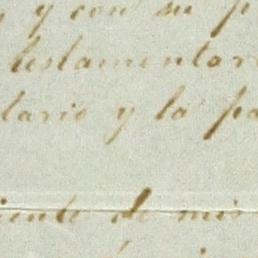 y con su p
testamentar
tario y la pa
iente de mis